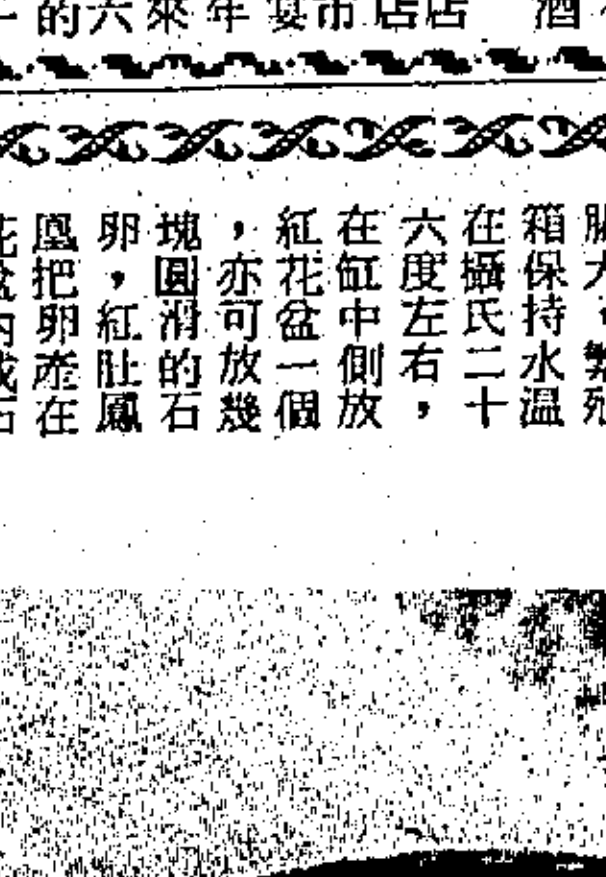 的六來年宴市店店 酒
箱保持水溫
在攝氏二十
六度左右，
在缸中側放
紅花盆一個
，亦可放幾
塊圓滑的石
卵，紅肚鳳
凰把卵產在